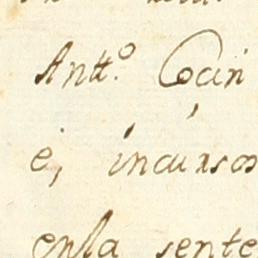 Antt.º Coçin
è, incursos
enla sente